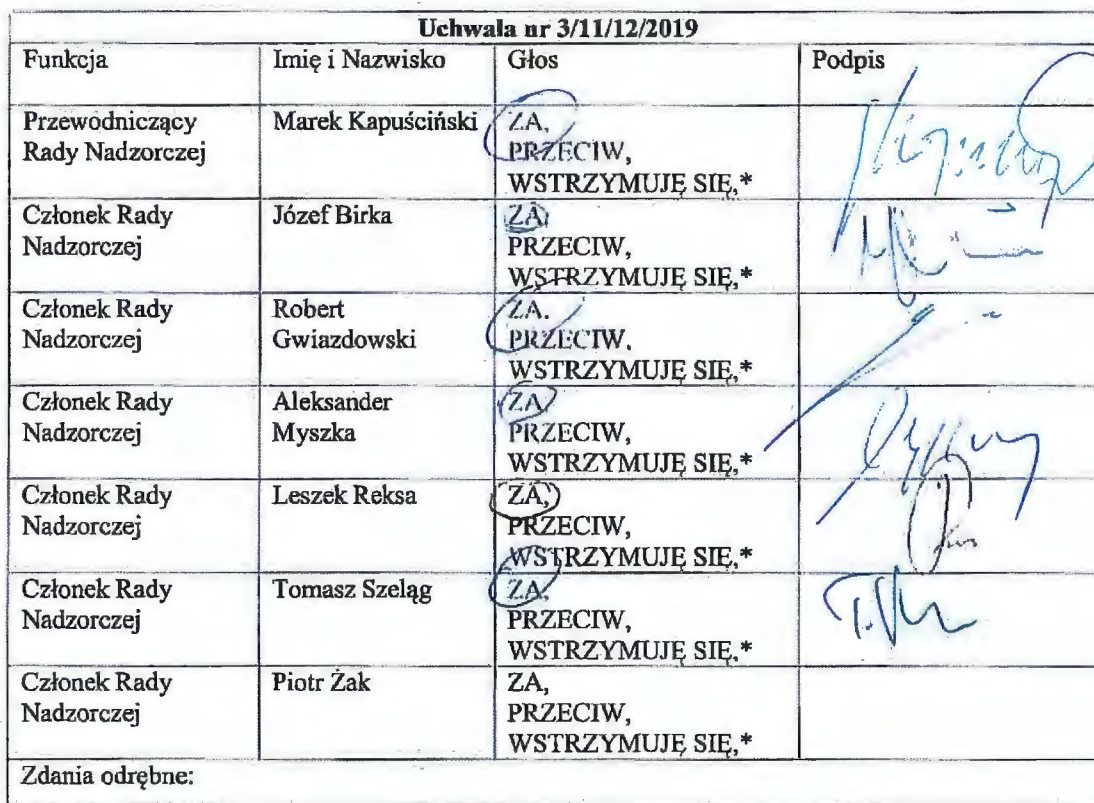 Uchwała nr 3/11/12/2019
Funkcja Imię i Nazwisko Głos Podpis
Przewodniczący Rady Nadzorczej
Marek Kapuściński
ZA,
PRZECIW,
WSTRZYMUJĘ SIĘ,*
Członek Rady
Nadzorczej
Józef Birka
ZA,
PRZECIW,
WSTRZYMUJĘ SIĘ,*
Członek Rady
Nadzorczej
Robert
Gwiazdowski
ZA,
PRZECIW,
WSTRZYMUJĘ SIĘ,*
Członek Rady
Nadzorczej
Aleksander
Myszka
ZA,
PRZECIW,
WSTRZYMUJĘ SIĘ,*
Członek Rady
Nadzorczej
Leszek Reksa
ZA,
PRZECIW,
WSTRZYMUJĘ SIĘ,*
Członek Rady
Nadzorczej
Tomasz Szeląg
ZA,
PRZECIW,
WSTRZYMUJĘ SIĘ,*
Członek Rady
Nadzorczej
Piotr Żak
ZA,
PRZECIW,
WSTRZYMUJĘ SIĘ,*
Zdania odrębne: